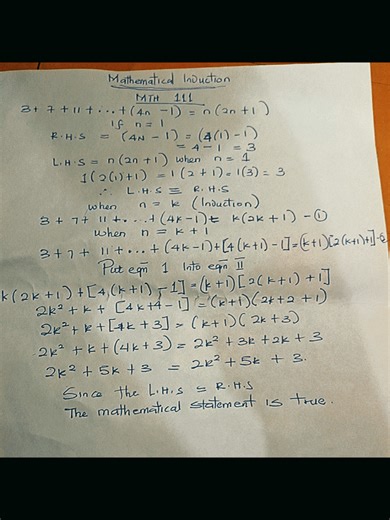 Mathematical Induction
MTH 111
3 + 7 + 11 + ... + (4n - 1) = n(2n + 1)
if n = 1
R.H.S = (4N - 1) = (4(1) - 1)
= 4 - 1 = 3
L.H.S = n(2n + 1) when n = 1
1(2(1) + 1) = 1(2 + 1) = 1(3) = 3
∴ L.H.S ≡ R.H.S
when n = k (Induction)
3 + 7 + 11 + ... + (4k - 1) = k(2k + 1) - ①
when n = k + 1
3 + 7 + 11 + ... + (4k - 1) + [4(k+1) - 1] = (k+1)[2(k+1)+1] - ②
Put eqn 1 Into eqn II
k(2k + 1) + [4(k+1) - 1] = (k+1)[2(k+1) + 1]
2k² + k + [4k + 4 - 1] = (k+1)(2k + 2 + 1)
2k² + k + [4k + 3] = (k + 1)(2k + 3)
2k² + k + (4k + 3) = 2k² + 3k + 2k + 3
2k² + 5k + 3 = 2k² + 5k + 3.
Since the L.H.S = R.H.S
The mathematical statement is true.